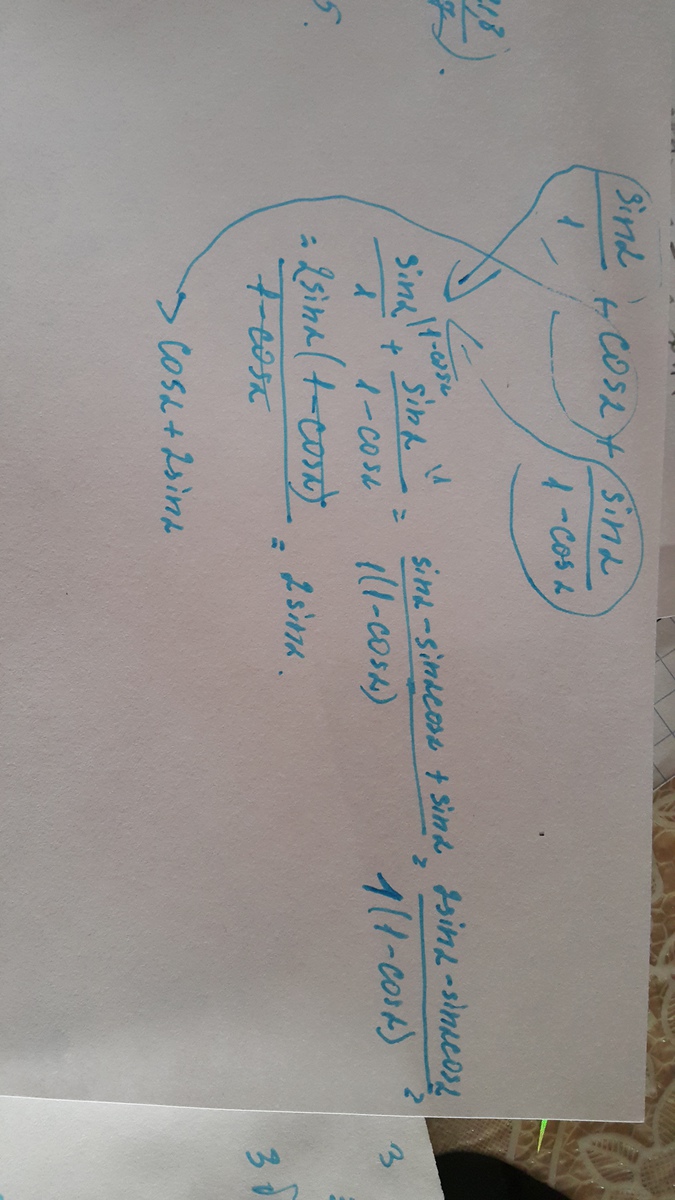 .18
).
5.
sinα/1 + cosα + sinα/(1-cosα)
sinα/1 |1-cosα + sinα/(1-cosα) |1 = (sinα - sinαcosα + sinα)/(1(1-cosα)) = (2sinα - sinαcosα)/(1(1-cosα)) =
= 2sinα(1-cosα)/(1-cosα) = 2sinα.
→ cosα + 2sinα
3
3